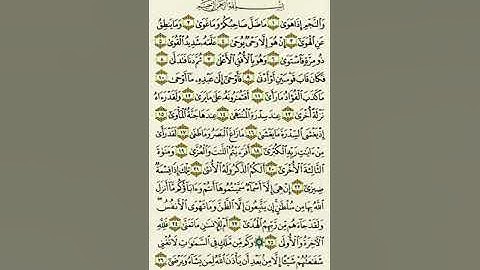 بِسْمِ اللَّهِ الرَّحْمَٰنِ الرَّحِيمِ
وَالنَّجْمِ إِذَا هَوَىٰ ١ مَا ضَلَّ صَاحِبُكُمْ وَمَا غَوَىٰ ٢ وَمَا يَنطِقُ
عَنِ الْهَوَىٰ ٣ إِنْ هُوَ إِلَّا وَحْيٌ يُوحَىٰ ٤ عَلَّمَهُ شَدِيدُ الْقُوَىٰ ٥
ذُو مِرَّةٍ فَاسْتَوَىٰ ٦ وَهُوَ بِالْأُفُقِ الْأَعْلَىٰ ٧ ثُمَّ دَنَا فَتَدَلَّىٰ ٨
فَكَانَ قَابَ قَوْسَيْنِ أَوْ أَدْنَىٰ ٩ فَأَوْحَىٰ إِلَىٰ عَبْدِهِ مَا أَوْحَىٰ ١٠
مَا كَذَبَ الْفُؤَادُ مَا رَأَىٰ ١١ أَفَتُمَارُونَهُ عَلَىٰ مَا يَرَىٰ ١٢ وَلَقَدْ رَآهُ
نَزْلَةً أُخْرَىٰ ١٣ عِندَ سِدْرَةِ الْمُنتَهَىٰ ١٤ عِندَهَا جَنَّةُ الْمَأْوَىٰ ١٥
إِذْ يَغْشَى السِّدْرَةَ مَا يَغْشَىٰ ١٦ مَا زَاغَ الْبَصَرُ وَمَا طَغَىٰ ١٧ لَقَدْ رَأَىٰ
مِنْ آيَاتِ رَبِّهِ الْكُبْرَىٰ ١٨ أَفَرَأَيْتُمُ اللَّاتَ وَالْعُزَّىٰ ١٩ وَمَنَاةَ
الثَّالِثَةَ الْأُخْرَىٰ ٢٠ أَلَكُمُ الذَّكَرُ وَلَهُ الْأُنثَىٰ ٢١ تِلْكَ إِذًا قِسْمَةٌ
ضِيزَىٰ ٢٢ إِنْ هِيَ إِلَّا أَسْمَاءٌ سَمَّيْتُمُوهَا أَنتُمْ وَآبَاؤُكُم مَّا أَنزَلَ
اللَّهُ بِهَا مِن سُلْطَانٍ إِن يَتَّبِعُونَ إِلَّا الظَّنَّ وَمَا تَهْوَى الْأَنفُسُ
وَلَقَدْ جَاءَهُم مِّن رَّبِّهِمُ الْهُدَىٰ ٢٣ أَمْ لِلْإِنسَانِ مَا تَمَنَّىٰ ٢٤ فَلِلَّهِ
الْآخِرَةُ وَالْأُولَىٰ ٢٥ وَكَم مِّن مَّلَكٍ فِي السَّمَاوَاتِ لَا تُغْنِي
شَفَاعَتُهُمْ شَيْئًا إِلَّا مِن بَعْدِ أَن يَأْذَنَ اللَّهُ لِمَن يَشَاءُ وَيَرْضَىٰ ٢٦